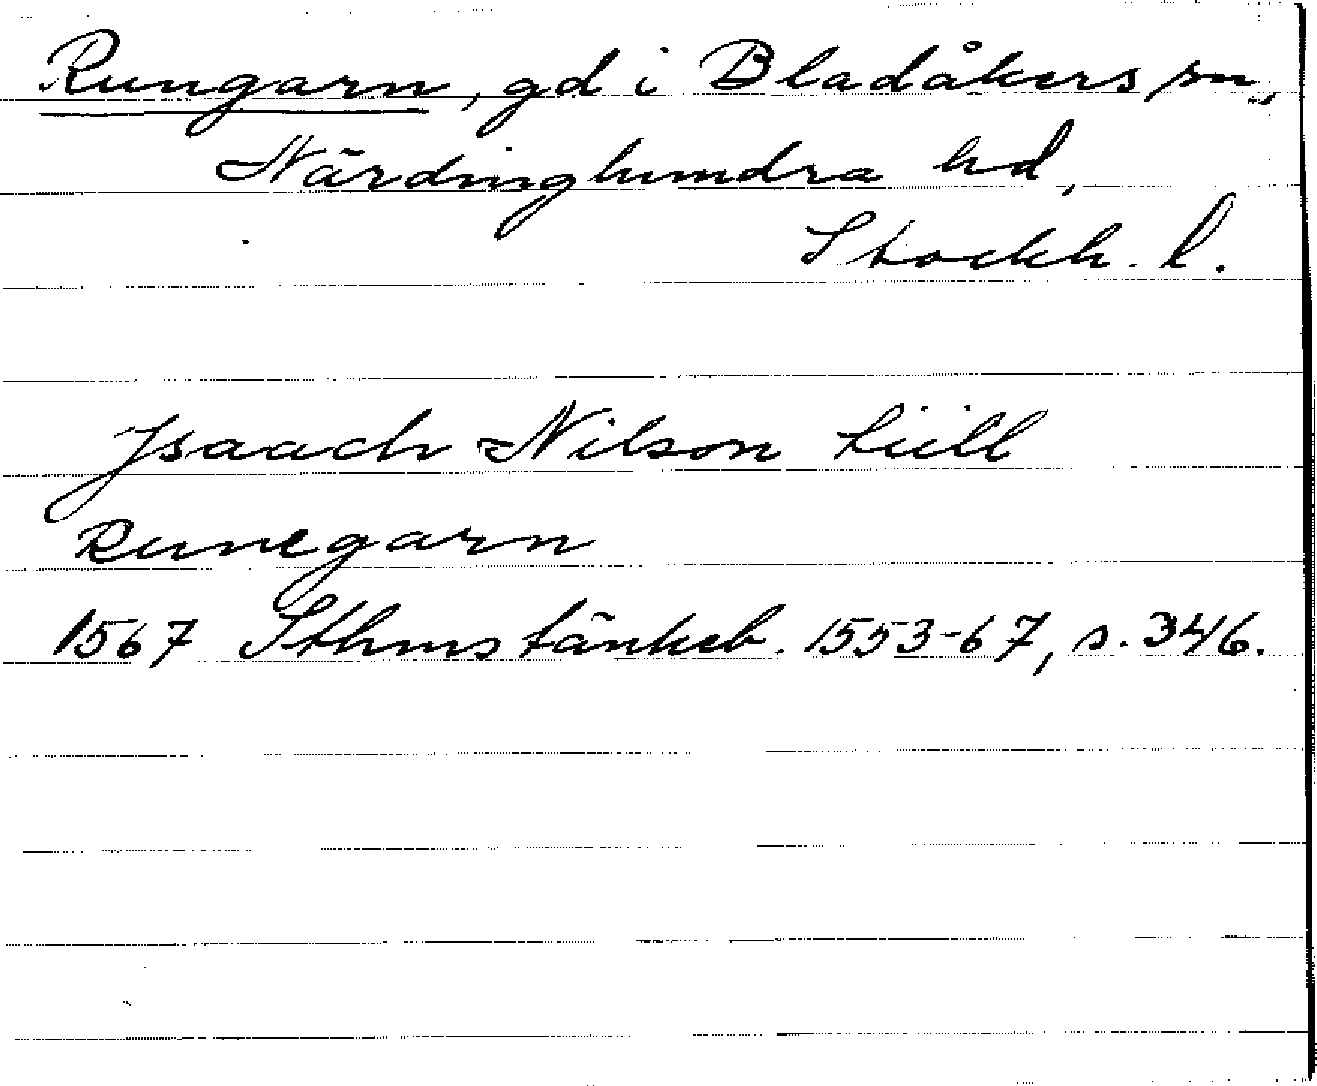 Rungarn, gd i Bladåkers sn,
Närdinghundra hd,
Stockh. l.
Jsaach Nilson tiill
Runegarn
1567 Sthms tänkeb. 1553-67, s. 346.